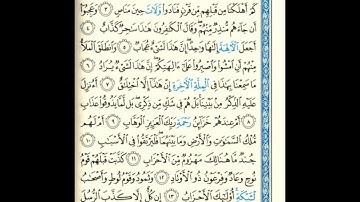 كَمْ أَهْلَكْنَا مِن قَبْلِهِم مِّن قَرْنٍ فَنَادَوا۟ وَّلَاتَ حِينَ مَنَاصٍ ۝٣ وَعَجِبُوٓا۟
أَن جَآءَهُم مُّنذِرٌ مِّنْهُمْ ۖ وَقَالَ ٱلْكَـٰفِرُونَ هَـٰذَا سَـٰحِرٌ كَذَّابٌ
۝٤ أَجَعَلَ ٱلْـَٔالِهَةَ إِلَـٰهًا وَٰحِدًا ۖ إِنَّ هَـٰذَا لَشَىْءٌ عُجَابٌ ۝٥ وَٱنطَلَقَ ٱلْمَلَأُ
مِنْهُمْ أَنِ ٱمْشُوا۟ وَٱصْبِرُوا۟ عَلَىٰٓ ءَالِهَتِكُمْ ۖ إِنَّ هَـٰذَا لَشَىْءٌ يُرَادُ
۝٦ مَا سَمِعْنَا بِهَـٰذَا فِى ٱلْمِلَّةِ ٱلْـَٔاخِرَةِ إِنْ هَـٰذَآ إِلَّا ٱخْتِلَـٰقٌ ۝٧ أَءُنزِلَ
عَلَيْهِ ٱلذِّكْرُ مِنۢ بَيْنِنَا ۚ بَلْ هُمْ فِى شَكٍّ مِّن ذِكْرِى ۖ بَل لَّمَّا يَذُوقُوا۟ عَذَابِ
۝٨ أَمْ عِندَهُمْ خَزَآئِنُ رَحْمَةِ رَبِّكَ ٱلْعَزِيزِ ٱلْوَهَّابِ ۝٩ أَمْ لَهُم
مُّلْكُ ٱلسَّمَـٰوَٰتِ وَٱلْأَرْضِ وَمَا بَيْنَهُمَا ۖ فَلْيَرْتَقُوا۟ فِى ٱلْأَسْبَـٰبِ ۝١٠
جُندٌ مَّا هُنَالِكَ مَهْزُومٌ مِّنَ ٱلْأَحْزَابِ ۝١١ كَذَّبَتْ قَبْلَهُمْ قَوْمُ
نُوحٍ وَعَادٌ وَفِرْعَوْنُ ذُو ٱلْأَوْتَادِ ۝١٢ وَثَمُودُ وَقَوْمُ لُوطٍ وَأَصْحَـٰبُ
لْـَٔيْكَةِ ۚ أُو۟لَـٰٓئِكَ ٱلْأَحْزَابُ ۝١٣ إِن كُلٌّ إِلَّا كَذَّبَ ٱلرُّسُلَ